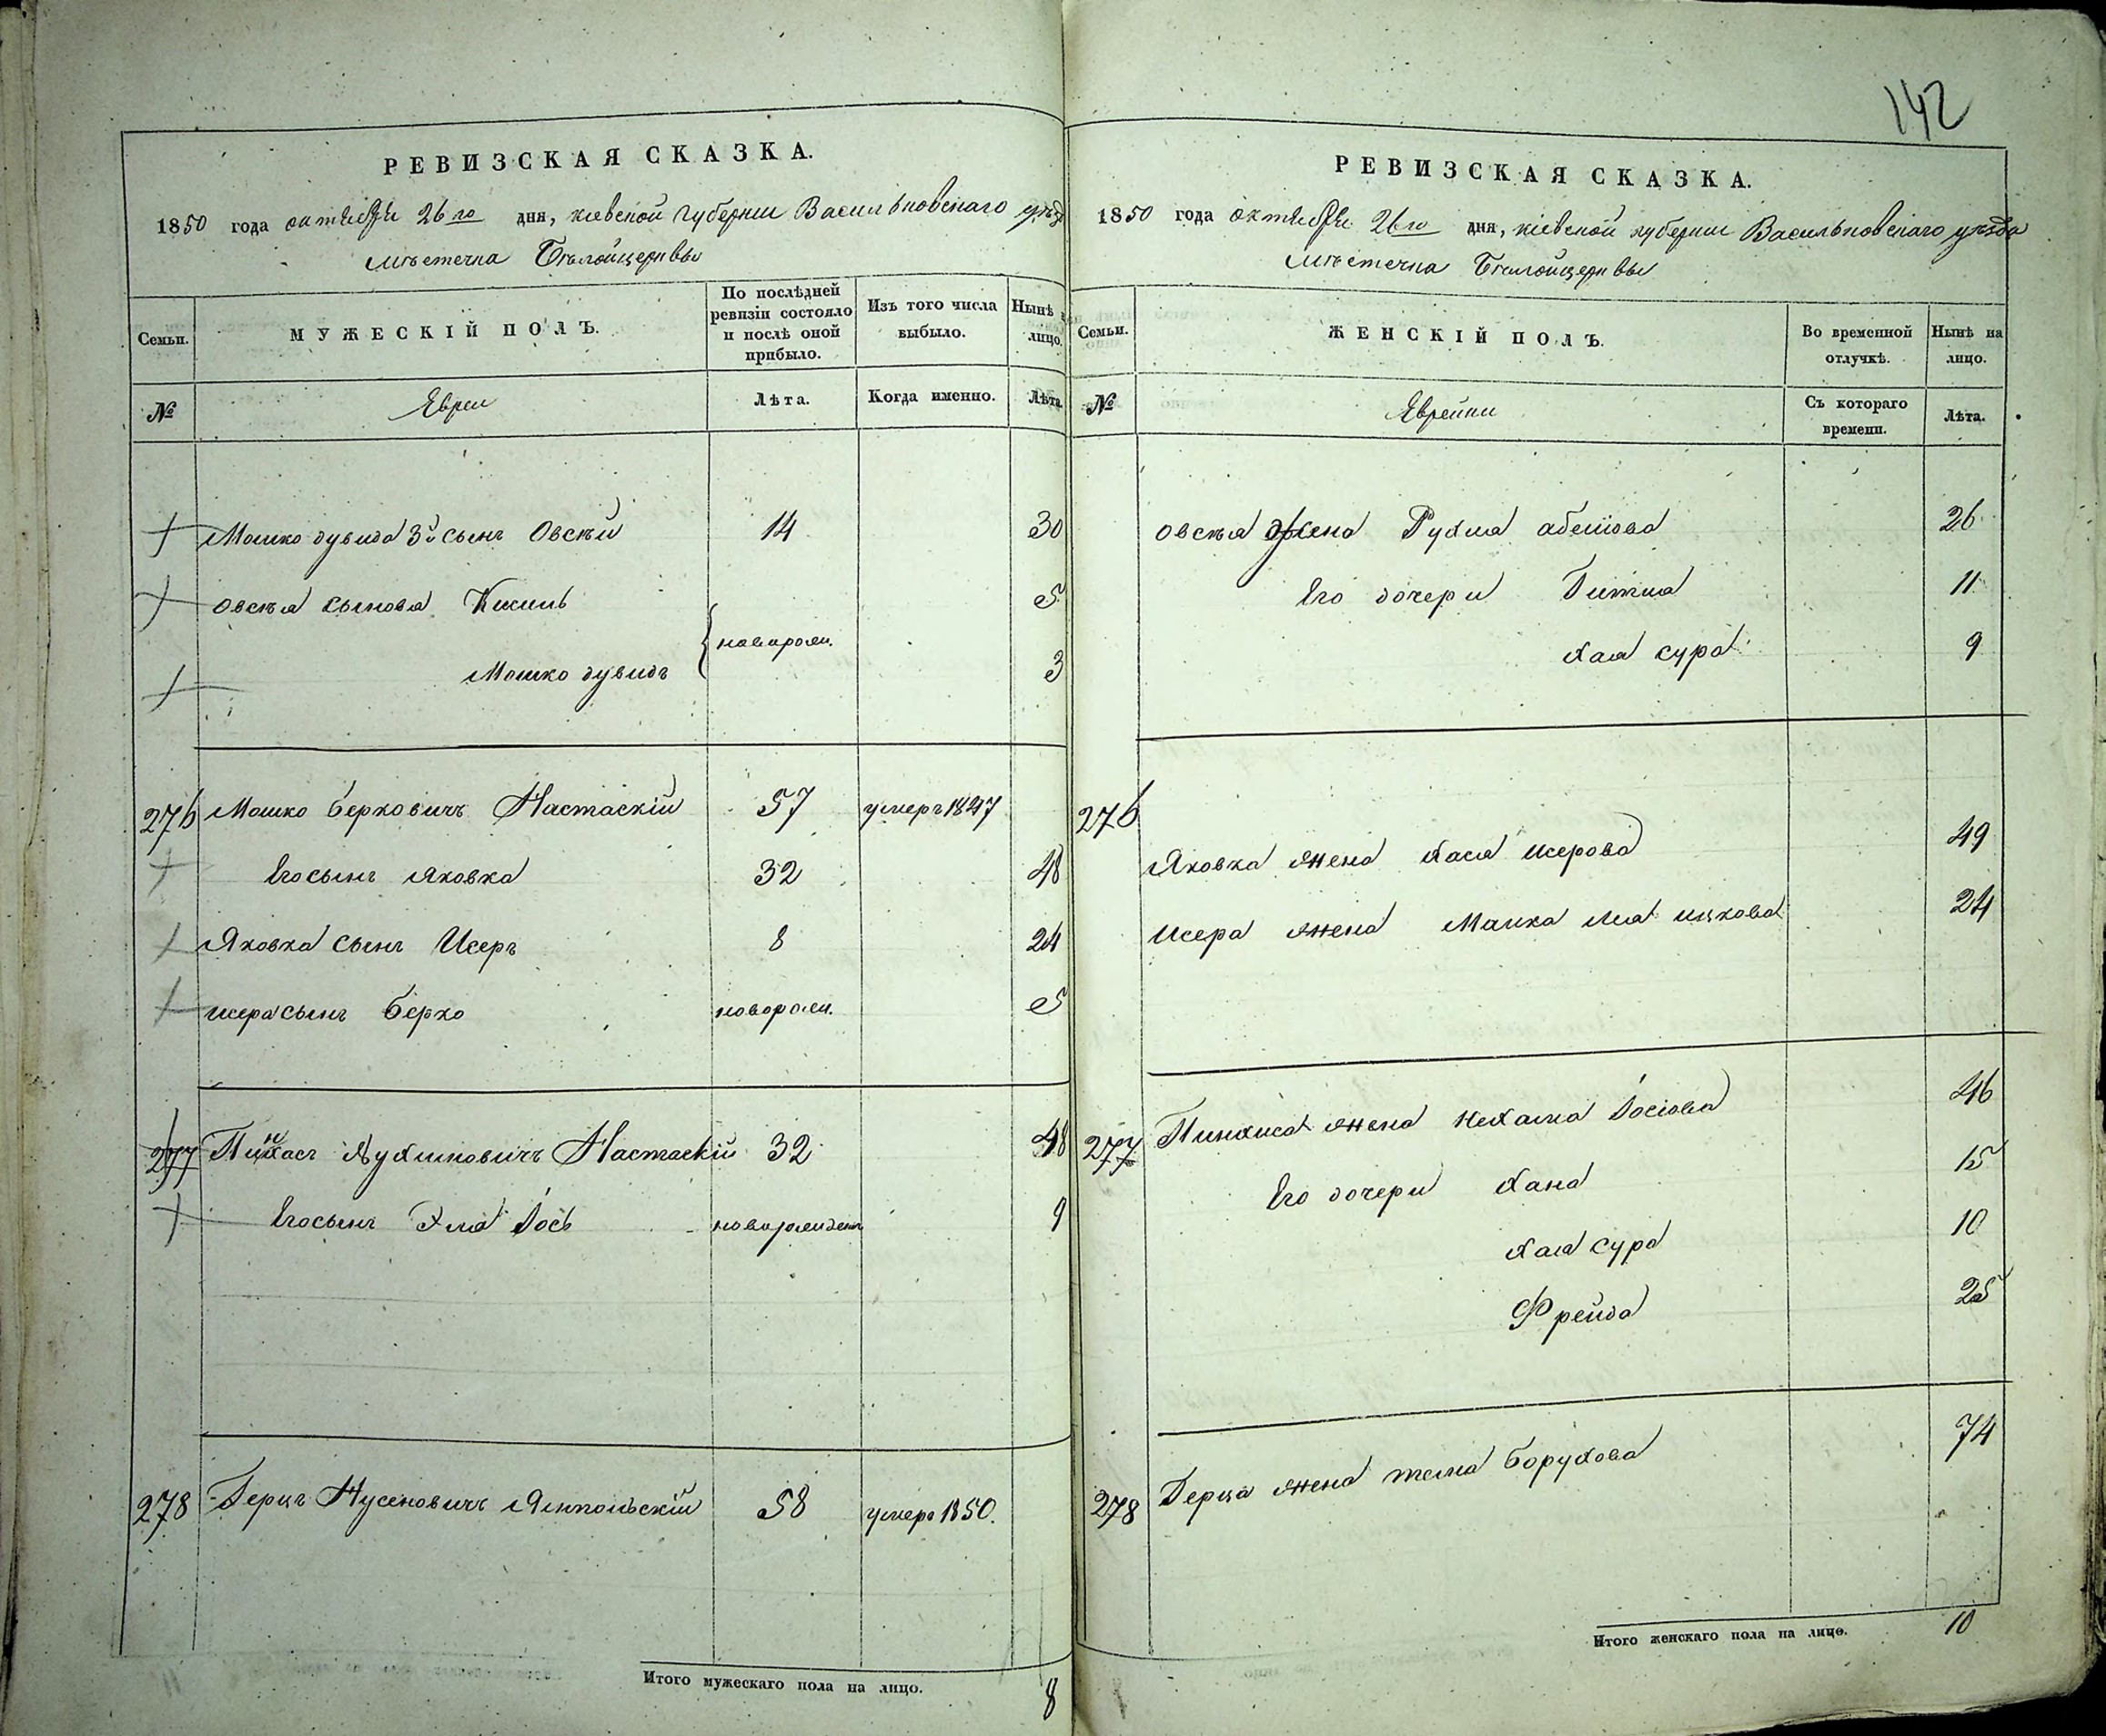 142
РЕВИЗСКАЯ СКАЗКА.
1850 года октября 26го дня, кіевской губерніи Васильковскаго уѣзд
мѣстечка Бѣлойцерквы
Семьи.
МУЖЕСКІЙ ПОЛЪ.
По послѣдней ревизіи состояло и послѣ оной прибыло.
Изъ того числа выбыло.
Нынѣ лицо.
№
Евреи
Лѣта.
Когда именно.
Лѣта.
Мошко дувида 3й сынъ Овсѣй 14 30
Овсѣя сыновя Кисиль 5
новорож.
Мошко дувидъ 3
276 Мошко Берковичъ Настаскій 57 умеръ 1847
Его сынъ Яковка 32 48
Яковка сынъ Исеръ 8 24
исера сынъ Берко новорож. 5
277 Пинхасъ Нухимовичъ Настаскій 32 48
Его сынъ Эля Іось новорожденъ 9
278 Герцъ Нусеновичъ Ямпольскій 58 умеръ 1850.
Итого мужескаго пола на лицо. 8
РЕВИЗСКАЯ СКАЗКА.
1850 года октября 26го дня, кіевской губерніи Васильковскаго уѣзда
мѣстечка Бѣлойцерквы
Семьи.
ЖЕНСКІЙ ПОЛЪ.
Во временной отлучкѣ.
Нынѣ на лицо.
№
Еврейки
Съ котораго времени.
Лѣта.
Овсѣя жена Рухля 26
Его дочери Гитля 11
хая сура 9
276
Яковка жена хася исерова 49
исера жена Малка лея ицкова 24
277 Пинхиса жена нехама Іосіова 46
Его дочери хана 15
хая сура 10
Фрейда 25
278 Герца жена Борухова 74
Итого женскаго пола на лицо. 10